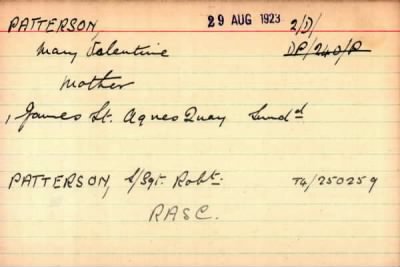 PATTERSON, 29 AUG 1923 2/D/
Mary Valentine DP/240/R
Mother
1, James St. Agnes Quay Sund^d.
PATTERSON, S/Sgt. Robt. T4/250259
RASC.